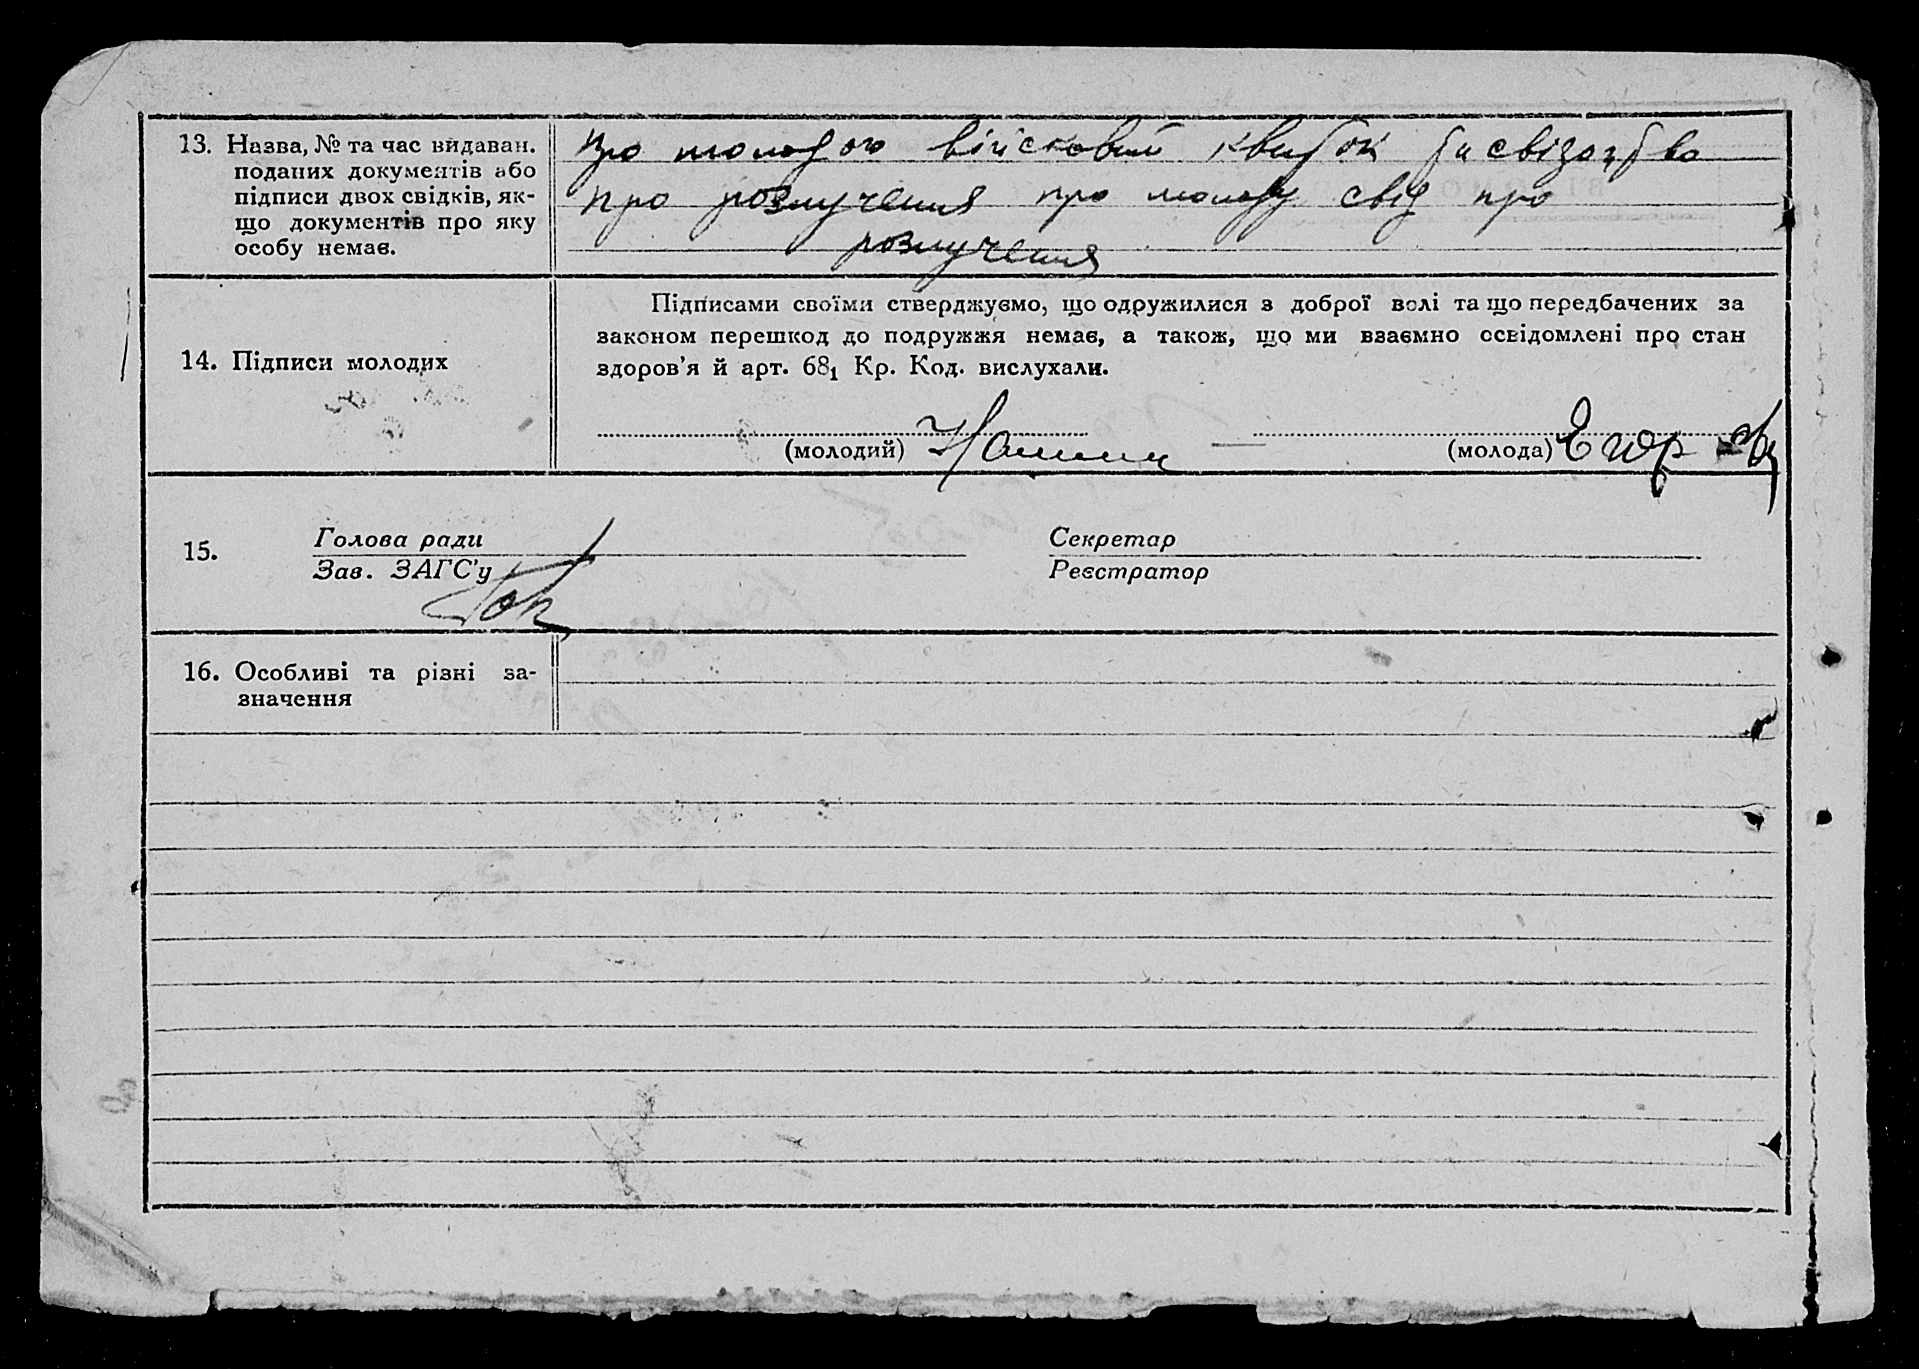 13. Назва, № та час видаван. поданих документів або підписи двох свідків, якщо документів про яку особу немає.
про молодого військовий квиток та свідоцтво
про розлучення про молоду свід про
розлучення
14. Підписи молодих
Підписами своїми стверджуємо, що одружилися з доброї волі та що передбачених за
законом перешкод до подружжя немає, а також, що ми взаємно освідомлені про стан
здоров'я й арт. 68₁ Кр. Код. вислухали.
(молодий)
(молода)
15.
Голова ради
Зав. ЗАГС'у
Секретар
Реєстратор
16. Особливі та різні за-
значення